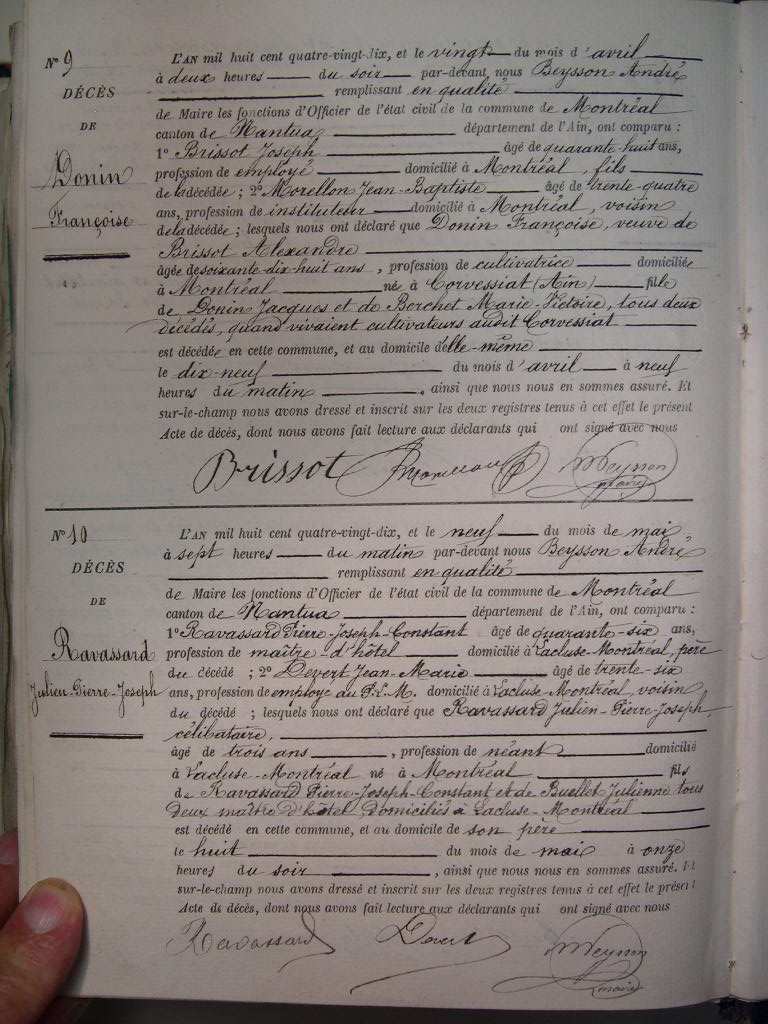 N° 9
DÉCÈS
DE
Donin
Françoise
L'AN mil huit cent quatre-vingt-dix, et le vingt du mois d'avril
à deux heures du soir par-devant nous Beysson André
remplissant en qualité
de Maire les fonctions d'Officier de l'état civil de la commune de Montréal
canton de Nantua département de l'Ain, ont comparu :
1° Brissot Joseph âgé de quarante-huit ans,
profession de employé domicilié à Montréal, fils
de la décédée ; 2° Morellon Jean-Baptiste âgé de trente-quatre
ans, profession de instituteur domicilié à Montréal, voisin
de la décédée ; lesquels nous ont déclaré que Donin Françoise, veuve de
Brissot Alexandre
âgée de soixante-dix huit ans, profession de cultivatrice domiciliée
à Montréal née à Corvessiat (Ain) fille
de Donin Jacques et de Borchet Marie-Victoire, tous deux
décédés, quand vivaient cultivateurs audit Corvessiat
est décédée en cette commune, et au domicile d'elle-même
le dix-neuf du mois d'avril à neuf
heures du matin, ainsi que nous nous en sommes assuré. Et
sur-le-champ nous avons dressé et inscrit sur les deux registres tenus à cet effet le présent
Acte de décès, dont nous avons fait lecture aux déclarants qui ont signé avec nous
Brissot
maire
N° 10
DÉCÈS
DE
Ravassard
Julien-Pierre-Joseph
L'AN mil huit cent quatre-vingt-dix, et le neuf du mois de mai
à sept heures du matin par-devant nous Beysson André
remplissant en qualité
de Maire les fonctions d'Officier de l'état civil de la commune de Montréal
canton de Nantua département de l'Ain, ont comparu :
1° Ravassard Pierre-Joseph-Constant âgé de quarante-six ans,
profession de maître-d'hôtel domicilié à Lacluse-Montréal, père
du décédé ; 2° Devert Jean-Marie âgé de trente-six
ans, profession de employé au P.L.M. domicilié à Lacluse-Montréal, voisin
du décédé ; lesquels nous ont déclaré que Ravassard Julien-Pierre-Joseph,
célibataire,
âgé de trois ans, profession de néant domicilié
à Lacluse-Montréal né à Montréal fils
de Ravassard Pierre-Joseph-Constant et de Buellet Julienne tous
deux maître d'hôtel, domiciliés à Lacluse-Montréal
est décédé en cette commune, et au domicile de son père
le huit du mois de mai à onze
heures du soir, ainsi que nous nous en sommes assuré. Et
sur-le-champ nous avons dressé et inscrit sur les deux registres tenus à cet effet le présent
Acte de décès, dont nous avons fait lecture aux déclarants qui ont signé avec nous
Ravassard Devert
maire